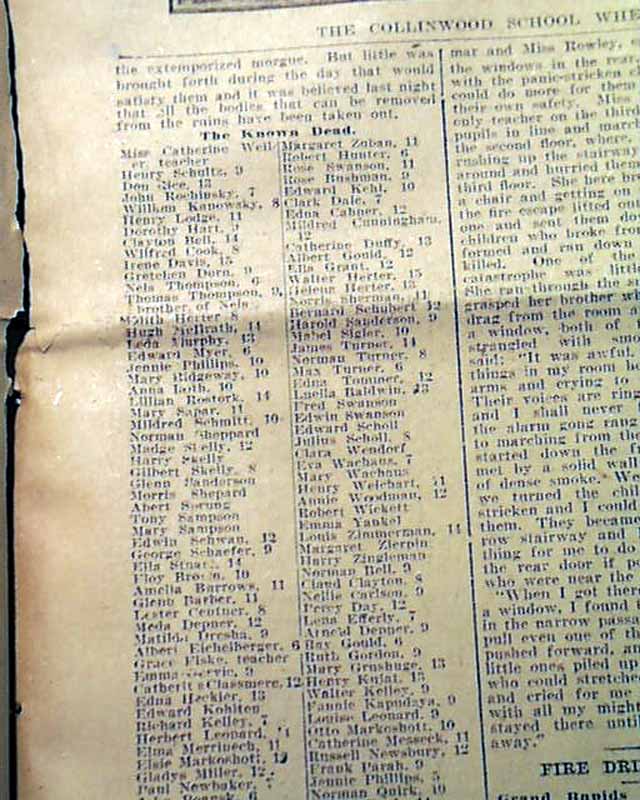 THE COLLINWOOD SCHOOL WHE
the extemporized morgue. But little was
brought forth during the day that would
satisfy them and it was believed last night
that all the bodies that can be removed
from the ruins have been taken out.
The Known Dead.
Miss Catherine Weil-
er, teacher
Henry Schultz, 9
Don Rice, 13
John Rochinsky, 7
William Kanowsky, 8
Henry Lodge, 11
Dorothy Hart, 9
Clayton Bell, 14
Wilfred Cook, 8
Irene Davis, 15
Gretchen Dorn, 9
Nels Thompson, 6
Thomas Thompson, 9,
brother of Nels
Herter, 8
Hugh McIlrath, 14
Leda Murphy, 13
Edward Myer, 6
Jennie Phillips, 10
Mary Ridgeway, 10
Anna Roth, 10
Lillian Rostork, 14
Mary Sapar, 11
Mildred Schmitt, 10
Norman Sheppard
Madge Skelly, 12
Harry Skelly
Gilbert Skelly, 8
Glenn Sanderson
Morris Shepard
Abert Sprung
Tony Sampson
Mary Sampson
Edwin Schwan, 12
George Schaefer, 9
Ella 14
Floy 10
Amelia Burrows, 11
Glenn Barber, 11
Lester 8
Meda Depner, 12
Matilda Dresha, 9
Albert Eichelberger, 6
Grace Fiske, teacher
Emma 9
12
Edna 13
Edward Kohlten
Richard Kelley, 7
Herbert Leonard,
Elma 11
Elsie Markoshott,
Gladys Miller, 12
Paul Newbaker, 7
Margaret Zoban, 11
Robert Hunter, 6
Rose Swanson, 11
Rose Bushman, 9
Edward Kehl, 10
Clark Dale, 7
Edna Cahner, 12
Mildred Cunningham,
12
Catherine Duffy, 13
Albert Gould, 12
Ella Grant, 12
Walter Herter, 15
Helene Herter, 13
Norris Sherman, 11
Bernard Schubert 12
Harold Sanderson, 9
Mabel Sigler, 10
James Turner, 14
Norman Turner, 8
Max Turner, 6
Edna 12
Luella Baldwin, 13
Fred Swanson
Edwin Swanson
Edward Scholl
Julius Scholl, 8
Clara Wendorf
Eva Wachaus, 7
Mary Wachaus
Henry Weichart, 11
Annie Woodman, 12
Robert Wickett
Emma Yankel
Louis Zimmerman, 14
Margaret Zierpin
Harry Zingleman
Norman Bell, 9
Claud Clayton, 8
Nellie Carlson, 9
Percy Day, 12
Lena Efferly, 7
Arnold Denner, 9
Ray Gould, 6
Ruth Gordon, 9
Mary Grushuge, 13
Henry 13
Walter Kelley, 9
Fannie Kapudaya, 9
Louise Leonard, 9
Otto Markoshott, 10
Catherine Messeck, 11
Russell Newsbury, 12
Frank Parah, 9
Jennie Phillips,
Norman Quirk, 10
mar and Miss Rowley,
the windows in the rear
with the panic-stricken
could do more for them
their own safety. Miss
only teacher on the third
pupils in line and march
the second floor, where,
rushing up the stairway
around and hurried them
third floor. She here bro
a chair and getting on
the fire escape lifted out
one and sent them do
children who broke from
formed and ran down
killed. One of the
catastrophe was littl
She ran through the s
grasped her brother w
drag from the room a
a window, both of
strangled with smo
said: "It was awful.
things in my room b
arms and crying to
Their voices are ring
and I shall never
the alarm gong rang
to marching from the
started down the f
met by a solid wall
of dense smoke. We
we turned the chi
stricken and I could
them. They became
row stairway and
thing for me to do
the rear door if po
who were near the
"When I got there
a window, I found
in the narrow passa
pull even one of th
pushed forward, an
little ones piled up
who could stretched
and cried for me
with all my might
stayed there until
away."
FIRE DRI
Grand Rapids